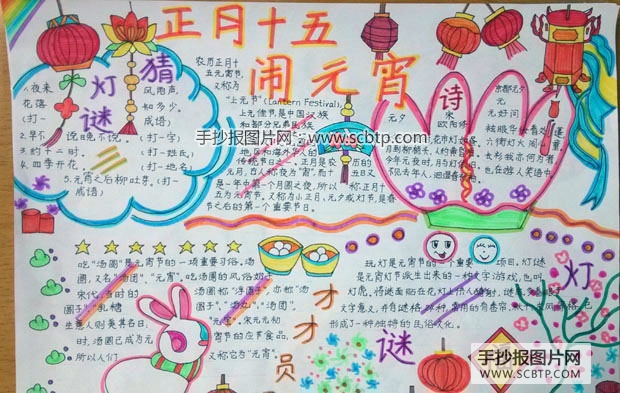 正月十五
闹元宵
猜
灯
谜
1.夜来风雨声,
花落知多少。
(打一成语)
2.早不说晚不说。(打一字)
3.约十二时。(打一姓氏)
4.四季开花。(打一地名)
5.元宵之后柳吐芽。(打一
成语)
农历正月十
五元宵节,
又称为
"上元节"(Lantern Festival),
上元佳节是中国汉族
和部分兄弟民族
传统节日之一。正月是农历的
元月,古人称夜为"宵",而十五日又
是一年中第一个月圆之夜,所以称正月十
五为元宵节。又称为小正月、元夕或灯节,是春
节之后的第一个重要节日。
手抄报图片网:www.scbtp.com
诗
元夕
宋
欧阳修
花市灯如昼
月到柳梢头,人约黄昏后
今年元夜时,月与灯依旧
不见去年人,泪湿春衫袖
京都元夕
元
元好问
袨服华妆着处逢
六街灯火闹儿童
长衫我亦何为者
也在游人笑语中
吃"汤圆"是元宵节的一项重要习俗。汤
圆,又名"汤团"、"元宵"。吃汤圆的风俗始于
宋代,当时的
汤圆称"浮圆子",亦称"汤
圆子"、
生意人则美其名曰
元宝"。宋末元初
时,汤圆已成为元宵节的应节食品,
所以人们又称它为"元宵"。
才
才
员
玩灯是元宵节的一个重要项目。灯谜
是元宵灯节派生出来的一种文字游戏,也叫
灯虎。将谜面贴在花灯上供人猜射,谜底多着眼于
文字意义,并有谜格
形成了一种独特的民俗文化。
灯
谜
手抄报图片网
WWW.SCBTP.COM